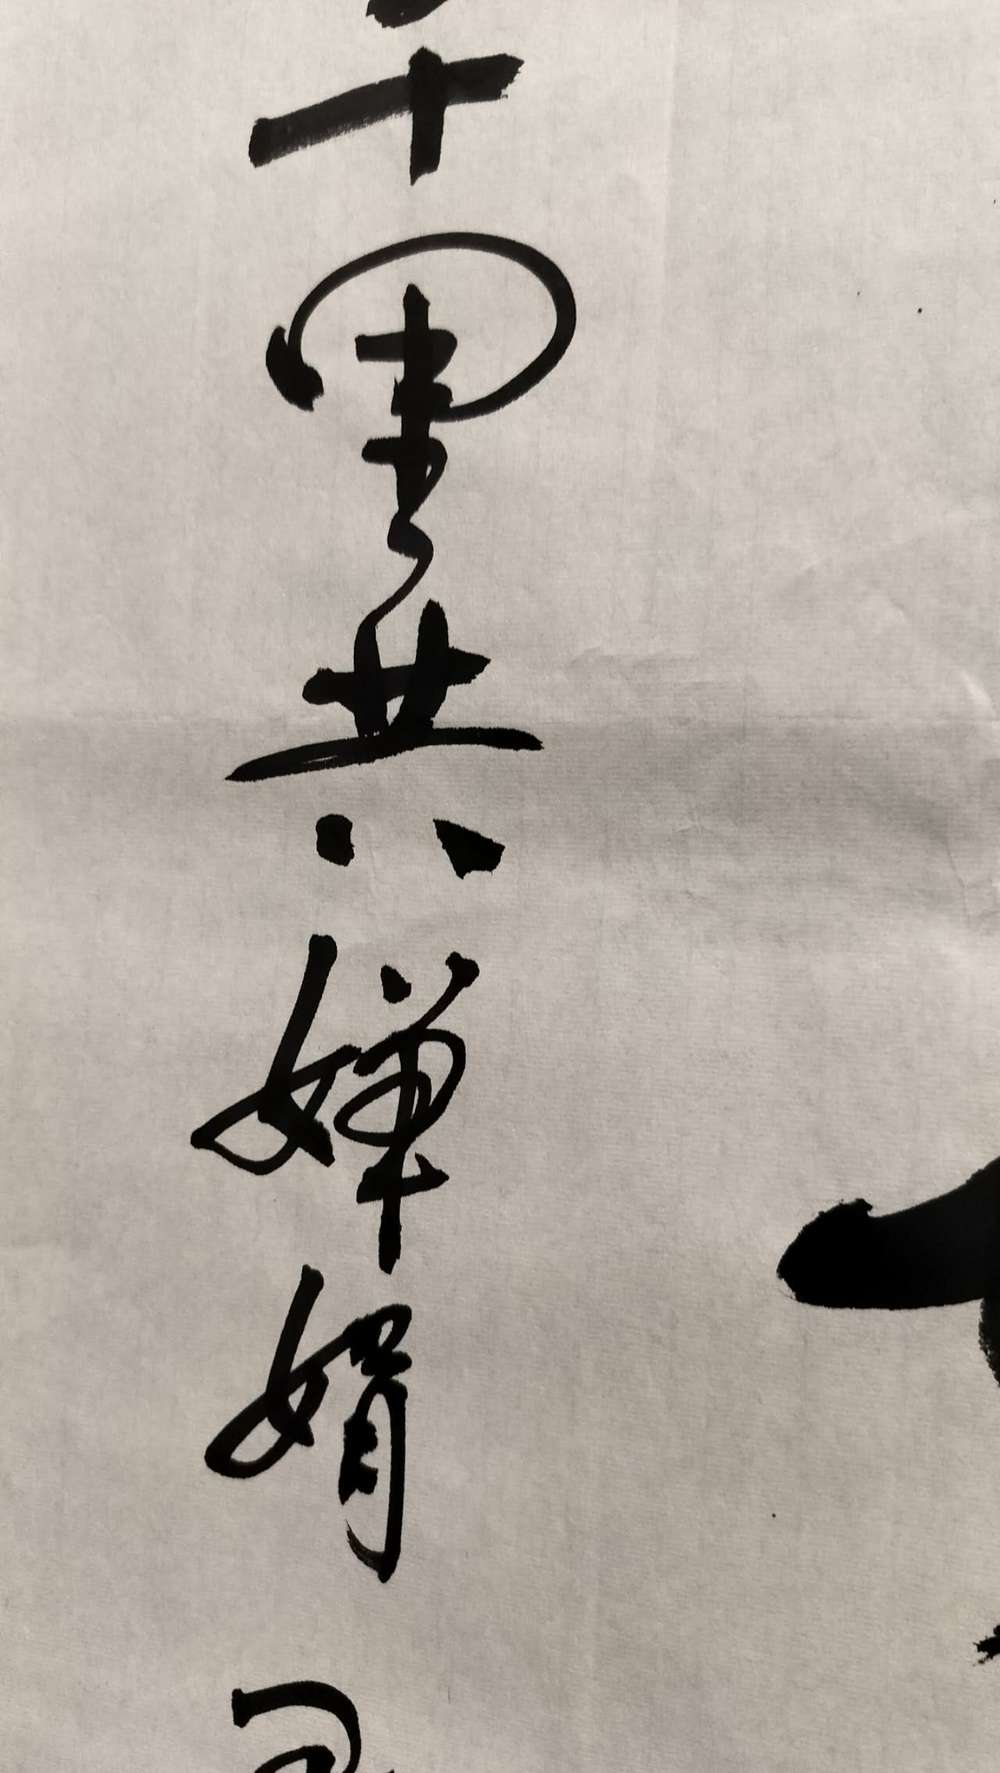 千里共嬋娟